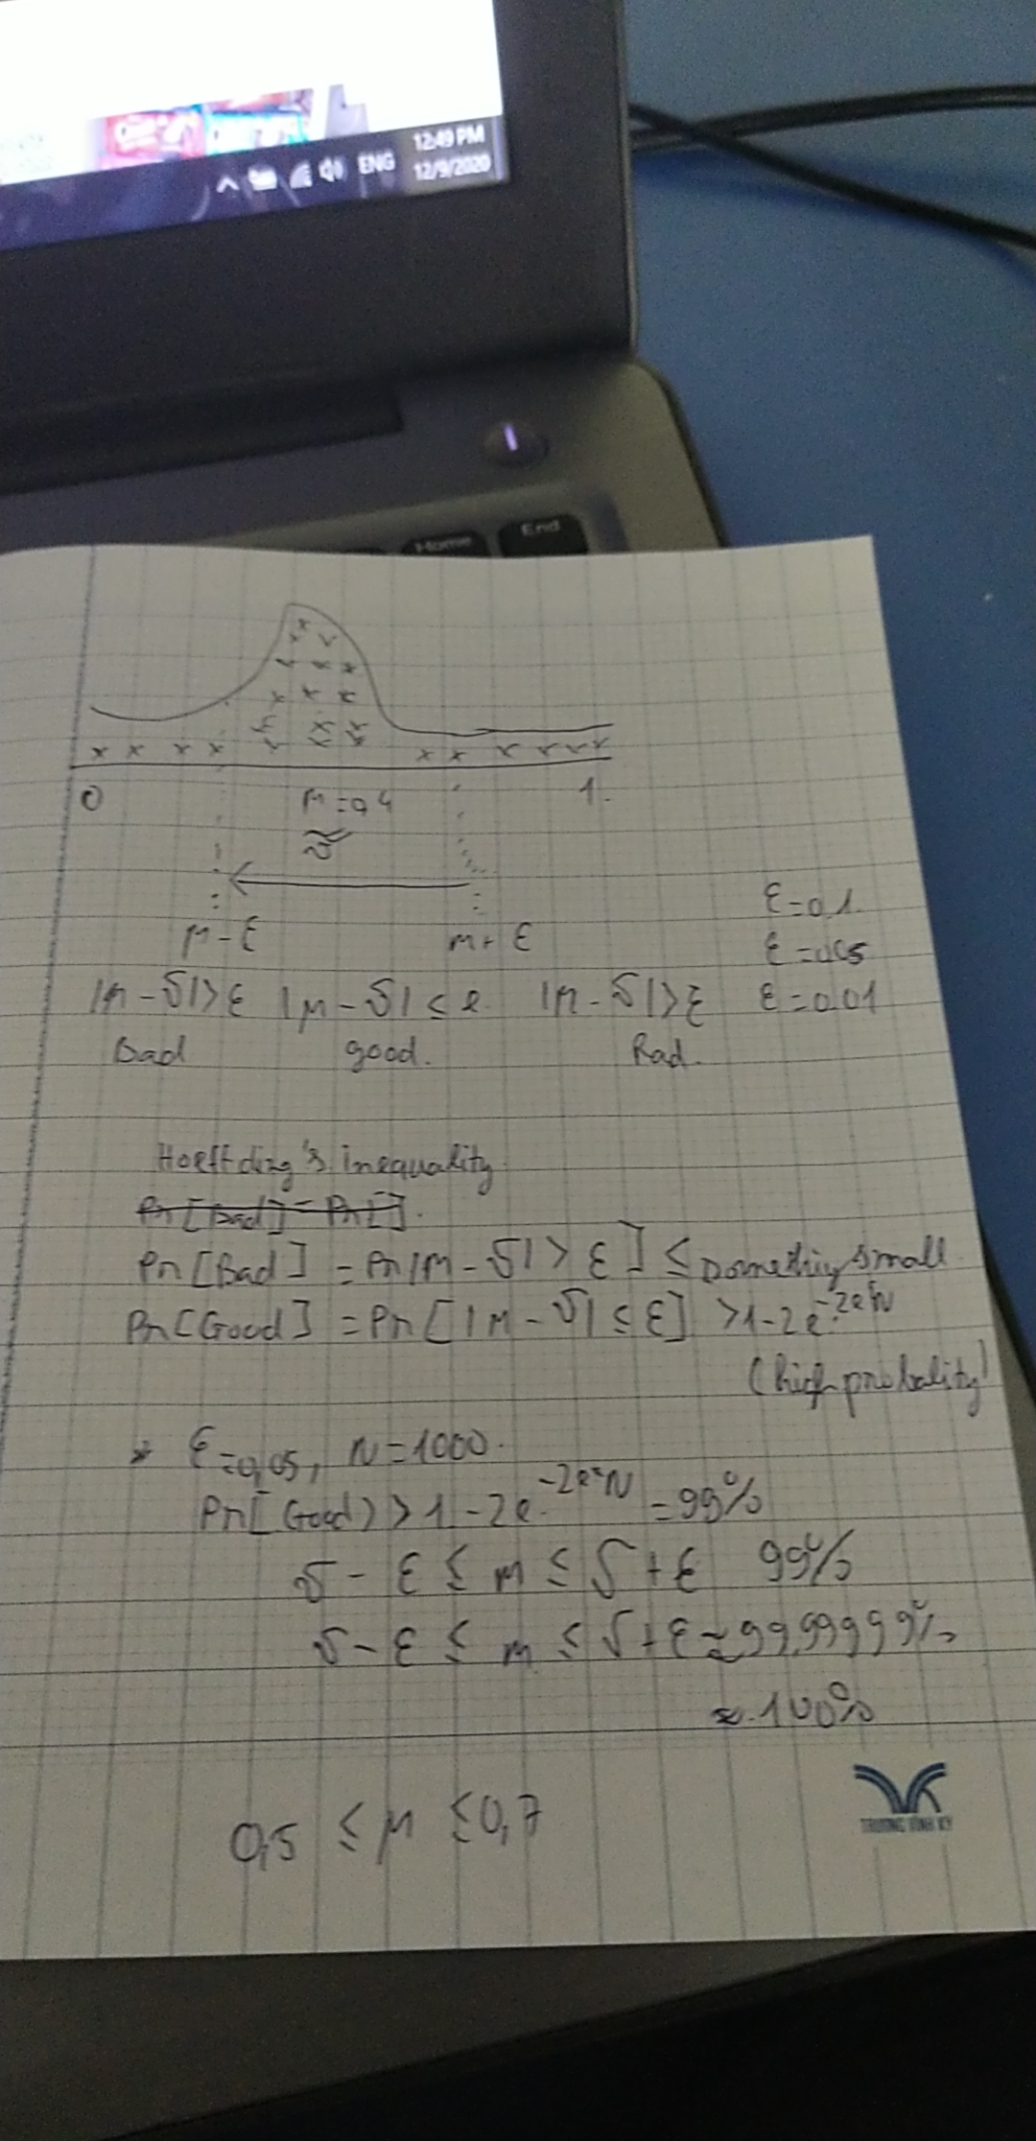 12:49 PM
ENG
12/9/2020
Home
End
0
μ = 0,4
1.
≈
ν
ε = 0,1
μ - ε
μ + ε
ε = 0,05
|μ - ν| > ε |μ - ν| ≤ ε. |μ - ν| > ε ε = 0.01
Bad good. Bad.
Hoeffding's inequality
Pr[Bad] = Pr[].
Pr[Bad] = Pr|μ - ν| > ε] ≤ something small
Pr[Good] = Pr[|μ - ν| ≤ ε] > 1 - 2e^{-2ε²N}
(high probability)
* ε = 0,05, N = 1000.
Pr[Good) > 1 - 2e^{-2ε²N} = 99%
ν - ε ≤ μ ≤ ν + ε 99%
ν - ε ≤ μ ≤ ν + ε ≈ 99,9999%
≈ 100%
TRƯƠNG VĨNH KÝ
0,5 ≤ μ ≤ 0,7